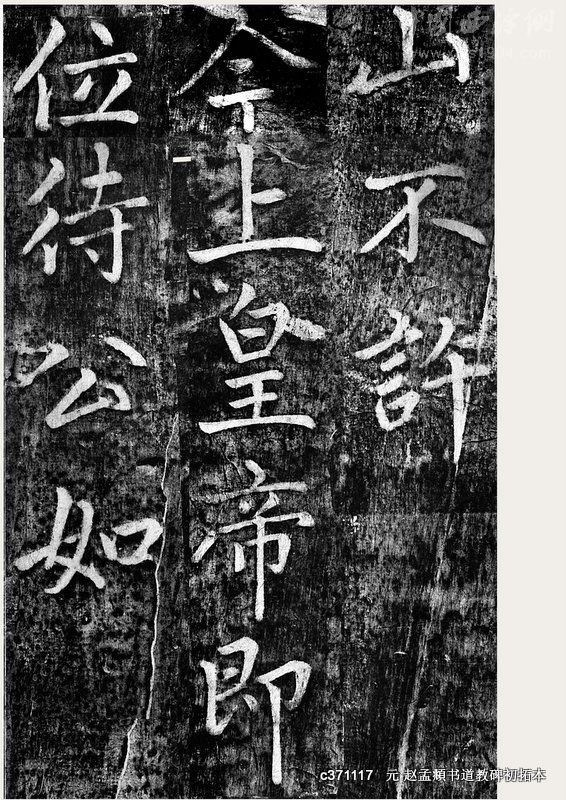 山不許
今上皇帝即
位待公如
c371117 元 赵孟頫书道教碑初拓本